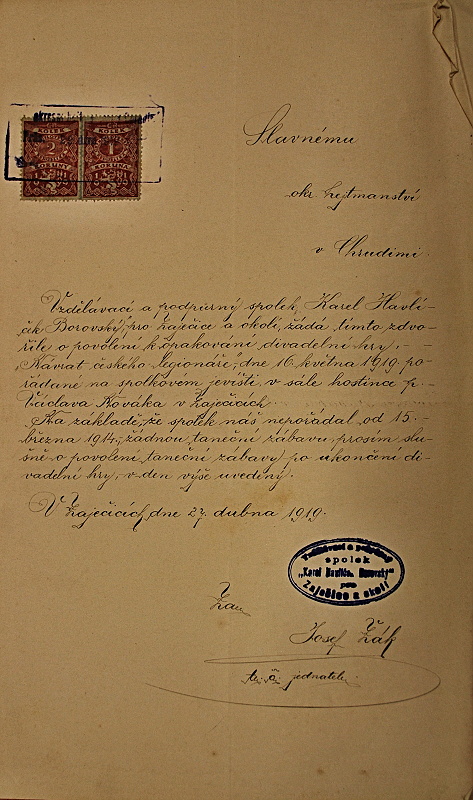 KOLEK
2
KORUNY
KOLEK
1
KORUNA
Slavnému
okr. hejtmanství
v Chrudimi
Vzdělávací a podpůrný spolek „Karel Havlí-
ček Borovský“, pro Zaječice a okolí, žádá tímto zdvo-
řile o povolení k opakování divadelní hry. - -
„Návrat českého legionáře“, dne 16. května 1919 po-
řádané na spolkovém jevišti v sále hostince p.
Václava Nováka v Zaječicích.
Na základě, že spolek náš nepořádal od 15.
března 1914, žádnou taneční zábavu, prosím slu-
šně o povolení taneční zábavy po ukončení di-
vadelní hry, v den výše uvedený.
V Zaječicích, dne 27. dubna 1919.
Vzdělávací a podpůrný
spolek
„Karel Havlíček Borovský“
pro
Zaječice a okolí
Za
Josef Žák
t. č. jednatel